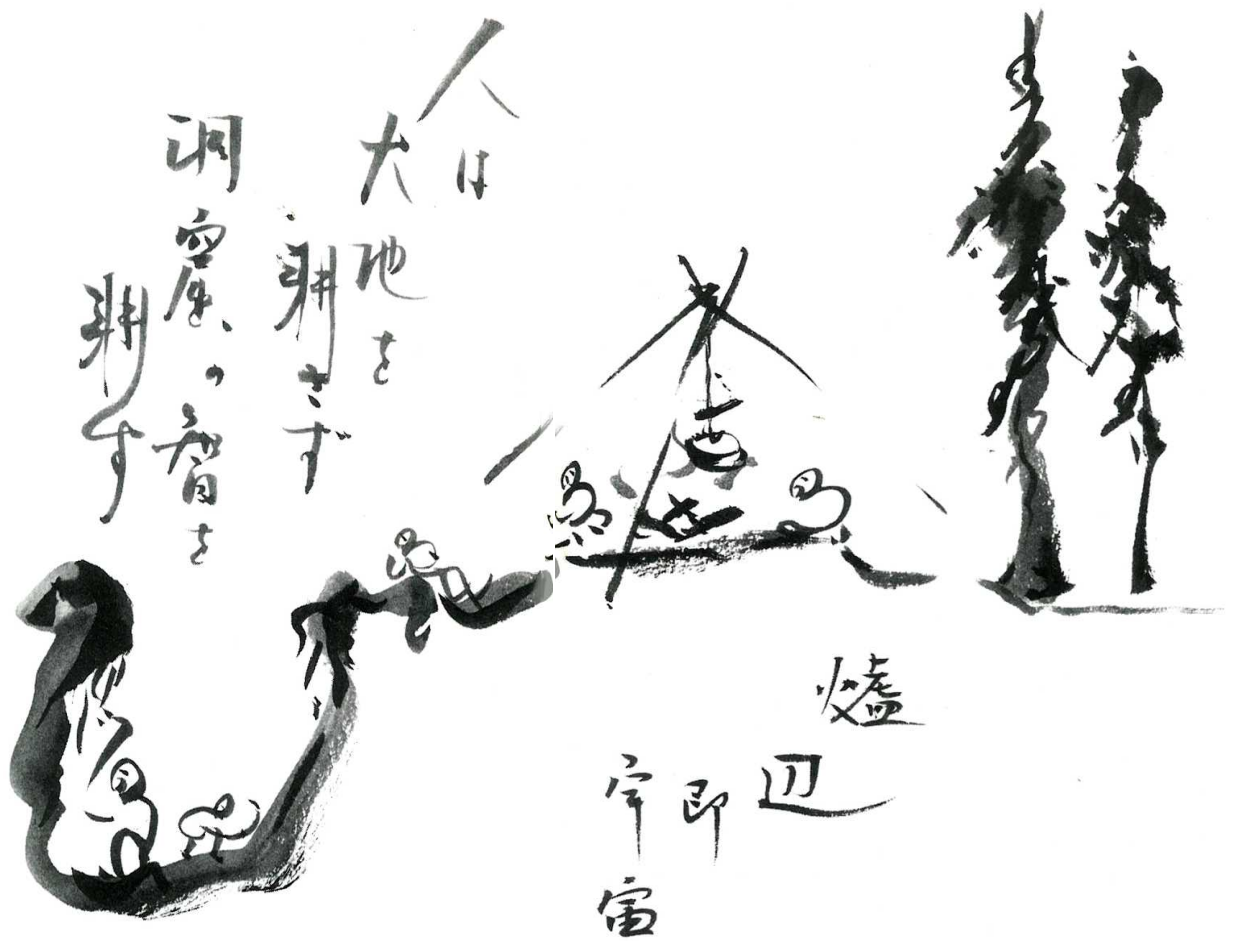 人は
大地を
耕さず
洞窟の智を
耕す
爐
辺
即
宇宙